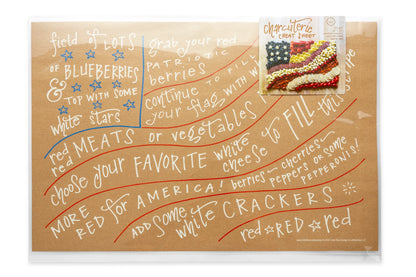 charcuterie
CHEAT SHEET
field of LOTS
of BLUEBERRIES
& TOP WITH SOME
white stars
grab your red
& PATRIOTIC
berries
continue TO FILL
your flag WITH
red MEATS or vegetables
red
choose your FAVORITE white cheese TO FILL this
MORE RED for AMERICA! berries ~ cherries ~
peppers or some
PEPPERONIS!
ADD some white CRACKERS
red ☆ RED ☆ red